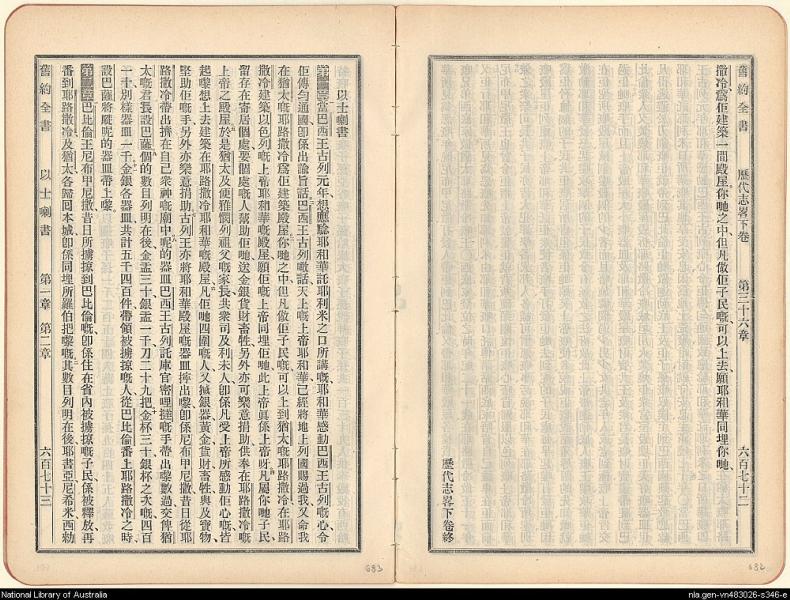 舊約全書 歷代志畧下卷 第三十六章 六百七十二
撒冷爲佢建築一間殿屋你哋之中但凡做佢子民嘅可以上去願耶和華同埋你哋
歷代志畧下卷終
以士喇書
當巴西王古列元年想應驗耶和華託耶利米之口所講嘅耶和華感動巴西王古列嘅心令
佢傳勻通國卽係出諭旨話巴西王古列噉話天上嘅上帝耶和華已經將地上列國賜過我又命我
在猶太嘅耶路撒冷爲佢建築殿屋你哋之中但凡做佢子民嘅可以上到猶太嘅耶路撒冷在耶路
撒冷建築以色列嘅上帝耶和華嘅殿屋願佢嘅上帝同埋佢哋此上帝眞係上帝呀凡屬你哋子民
留存在寄居個處要個處嘅人幫助佢哋送金銀貨財畜牲另外亦可樂意捐助供奉在耶路撒冷嘅
上帝之殿屋於是猶太及便雅憫列祖父嘅家長共衆司及利未人卽係凡受上帝所感動佢心嘅皆
起嚟想上去建築在耶路撒冷耶和華嘅殿屋凡佢哋四圍嘅人又搣銀器黃金貨財畜牲與及寶物
堅助佢嘅手另外亦樂意捐助古列王亦將耶和華殿屋嘅器皿擰出嚟卽係尼布甲尼撒昔日從耶
路撒冷帶出擠在自己衆神嘅廟中呢的器皿巴西王古列託庫官密哩撻嘅手帶出嚟數過交俾猶
太嘅君長設巴薩個的數目列明在後金盂三十銀盂一千刀二十九把金杯三十銀杯之次嘅四百
一十別樣器皿一千金銀各器皿共計五千四百件帶領被擄掠嘅人從巴比倫番上耶路撒冷之時
設巴薩將嚈呢的器皿帶上嚟
巴比倫王尼布甲尼撒昔日所擄掠到巴比倫嘅卽係住在省內被擄掠嘅子民係被釋放再
番到耶路撒冷及猶太各歸回本城卽係同埋所羅伯把嚟嘅其數目列明在後耶書亞尼希米西勑
舊約全書 以士喇書 第一章 第二章 六百七十三
683
682
National Library of Australia
nla.gen-vn483026-s346-e